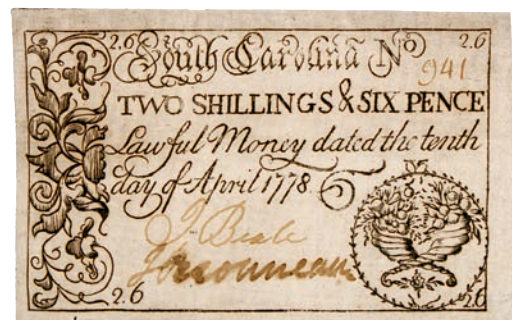 2.6 South Carolina No 2.6
941
TWO SHILLINGS & SIX PENCE
Lawful Money dated the tenth
day of April 1778.
J. Beale
2.6 2.6